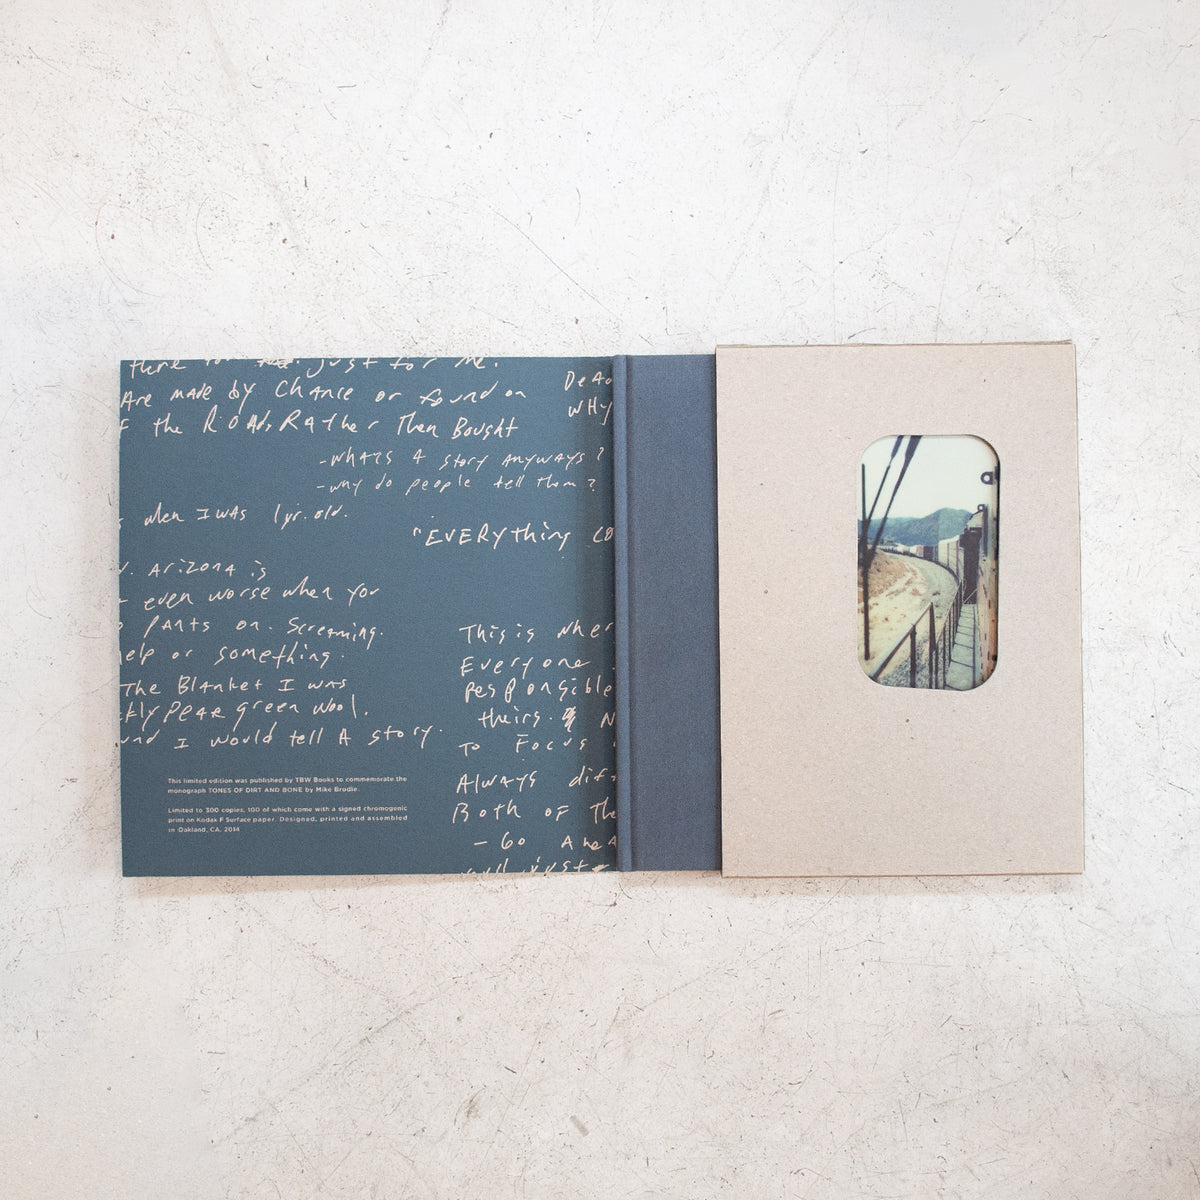 there for me. just for me.
Are made by Chance or found on
the ROAds, RAther Then Bought
-whats A story Anyways?
-why do people tell them?
when I wAs 1 yr. old.
"EVERything
ArizonA is
even worse when you
PAnts on. Screaming.
or something.
The BlAnket I wAs
peAr green wool.
I would tell A story.
DeAd
WHY
This is
Everyone
Responsible
theirs.
To Focus
AlwAys
Both of The
- Go
just
This limited edition was published by TBW Books to commemorate the
monograph TONES OF DIRT AND BONE by Mike Brodie.
Limited to 300 copies, 100 of which come with a signed chromogenic
print on Kodak F Surface paper. Designed, printed and assembled
in Oakland, CA. 2014